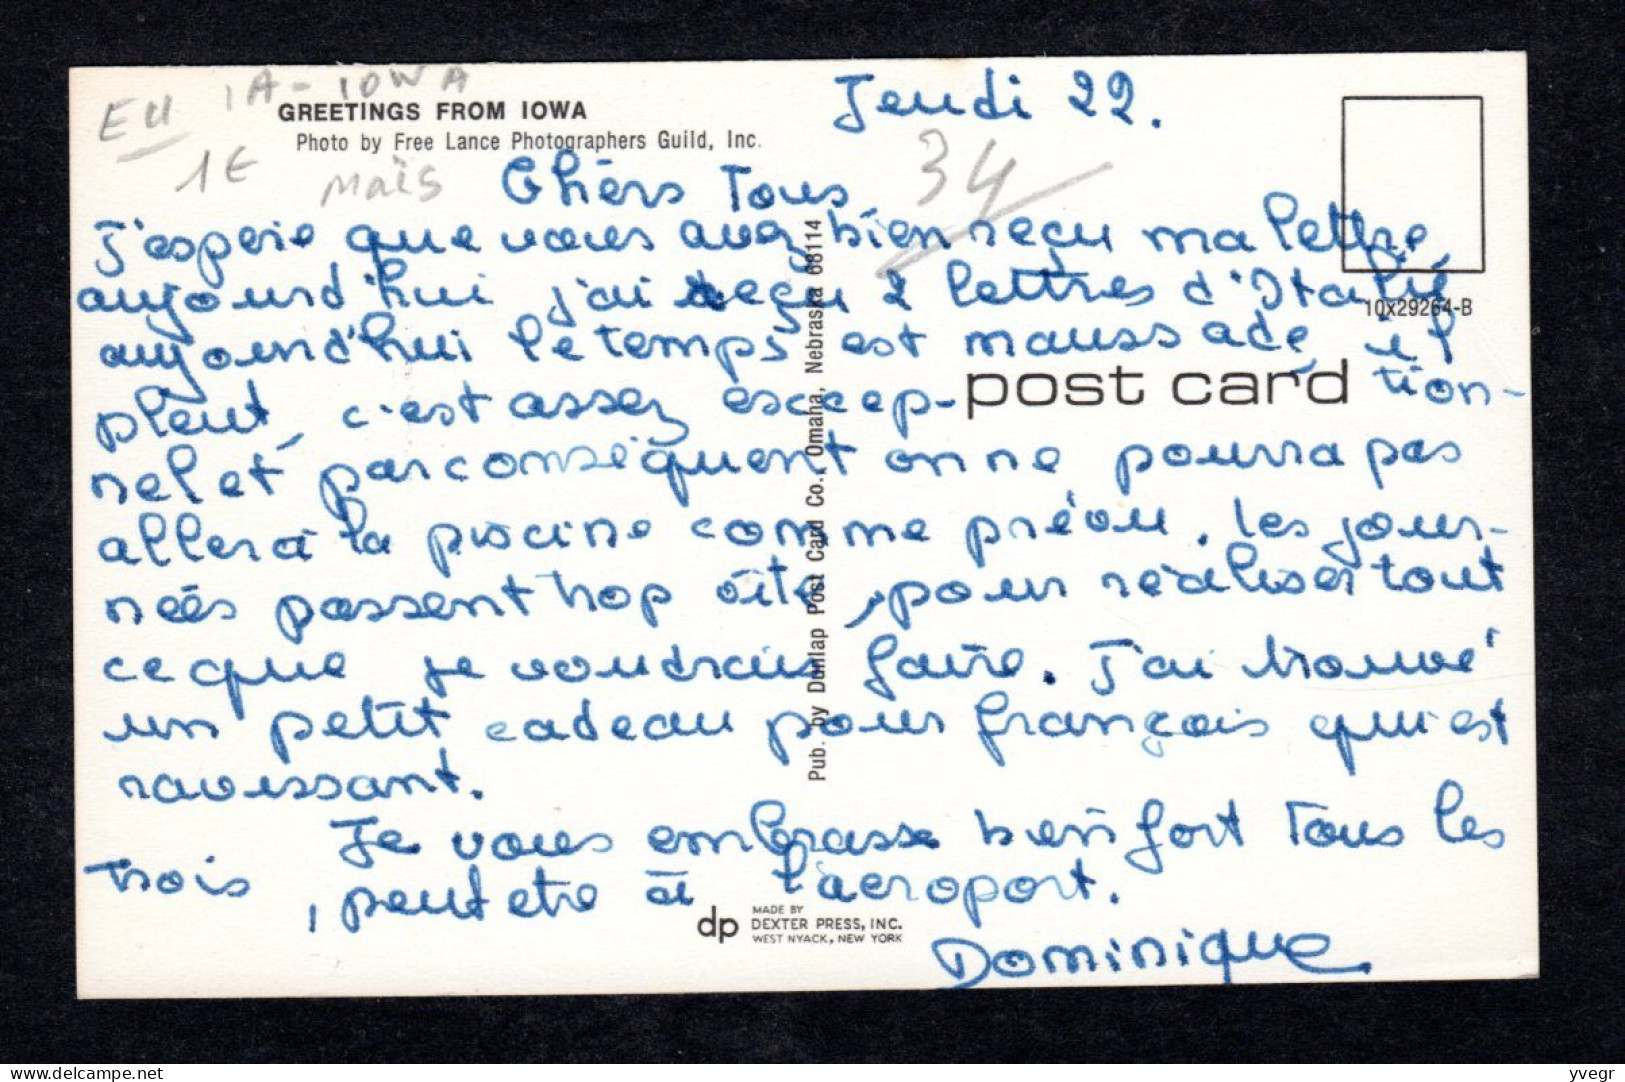 EU IA-IOWA
GREETINGS FROM IOWA
Photo by Free Lance Photographers Guild, Inc.
1€ Maïs 34
Jeudi 22.
Chers Tous
J'espère que vous avez bien reçu ma lettre
aujourd'hui j'ai reçu 2 lettres d'Italie
10x29264-B
aujourd'hui le temps est maussade, il
post card
pleut, c'est assez excep- tion-
nel et par conséquent on ne pourra pas
aller à la piscine comme prévu. Les jour-
nées passent trop vite, pour réaliser tout
ce que je voudrais faire. J'ai trouvé
un petit cadeau pour françois qui est
ravissant.
Je vous embrasse bien fort tous les
trois, peut etre à l'aéroport.
Dominique
Pub. by Dunlap Post Card Co., Omaha, Nebraska 68114
dp MADE BY
DEXTER PRESS, INC.
WEST NYACK, NEW YORK
delcampe.net
yvegr